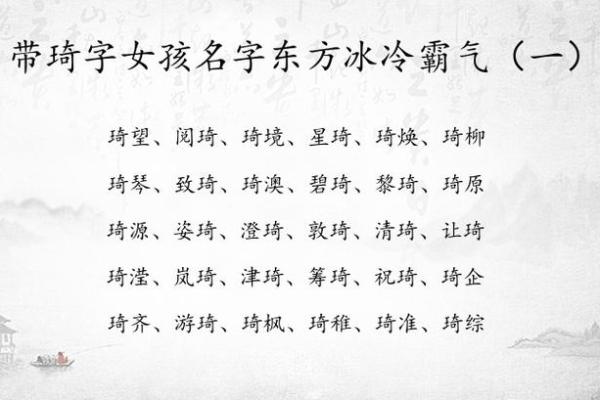 带琦字女孩名字东方冰冷霸气（一）
琦望、阅琦、琦境、星琦、琦焕、琦柳
琦琴、致琦、琦澳、碧琦、黎琦、琦原
琦源、姿琦、澄琦、敦琦、清琦、让琦
琦滢、岚琦、津琦、筹琦、祝琦、琦企
琦齐、游琦、琦枫、琦稚、琦准、琦综